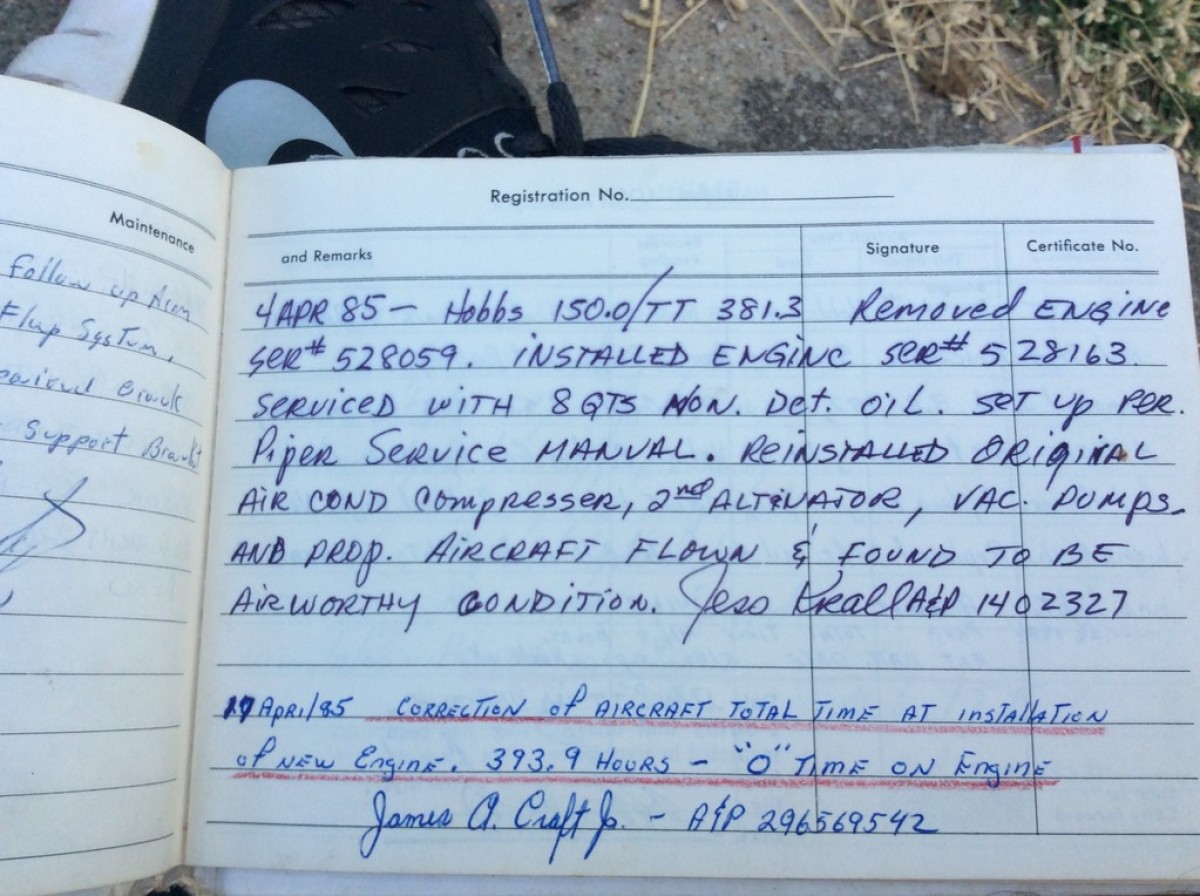 Maintenance
Follow up Arm
Flap System.
Support
Registration No.
and Remarks Signature Certificate No.
4 APR 85 — Hobbs 150.0/TT 381.3 Removed ENGINE
SER# 528059. INSTALLED ENGINE SER# 528163
SERVICED WITH 8 QTS NON. Det. OIL. SET UP PER.
Piper Service MANUAL. REINSTALLED ORIGINAL
AIR COND COMPRESSER, 2nd ALTINATOR, VAC. PUMPS.
AND PROP. AIRCRAFT FLOWN & FOUND TO BE
AIRWORTHY CONDITION. Jess Krall A&P 1402327
17 April/85 CORRECTION of AIRCRAFT TOTAL TIME AT installATION
of NEW Engine. 393.9 HOURS — "0" TIME ON Engine
James A. Craft Jr. — A&P 296569542